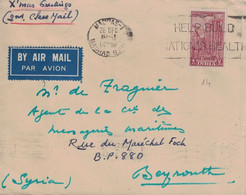 X'mas Greetings
2nd Class Mail
MADRAS
26 DEC
HELP BUILD
NATIONAL HEALTH
BY AIR MAIL
PAR AVION
Mr de Fraguier
Agent de la Cie des
messageries maritimes
Rue du Maréchal Foch
B.P. 880
Beyrouth
(Syria)